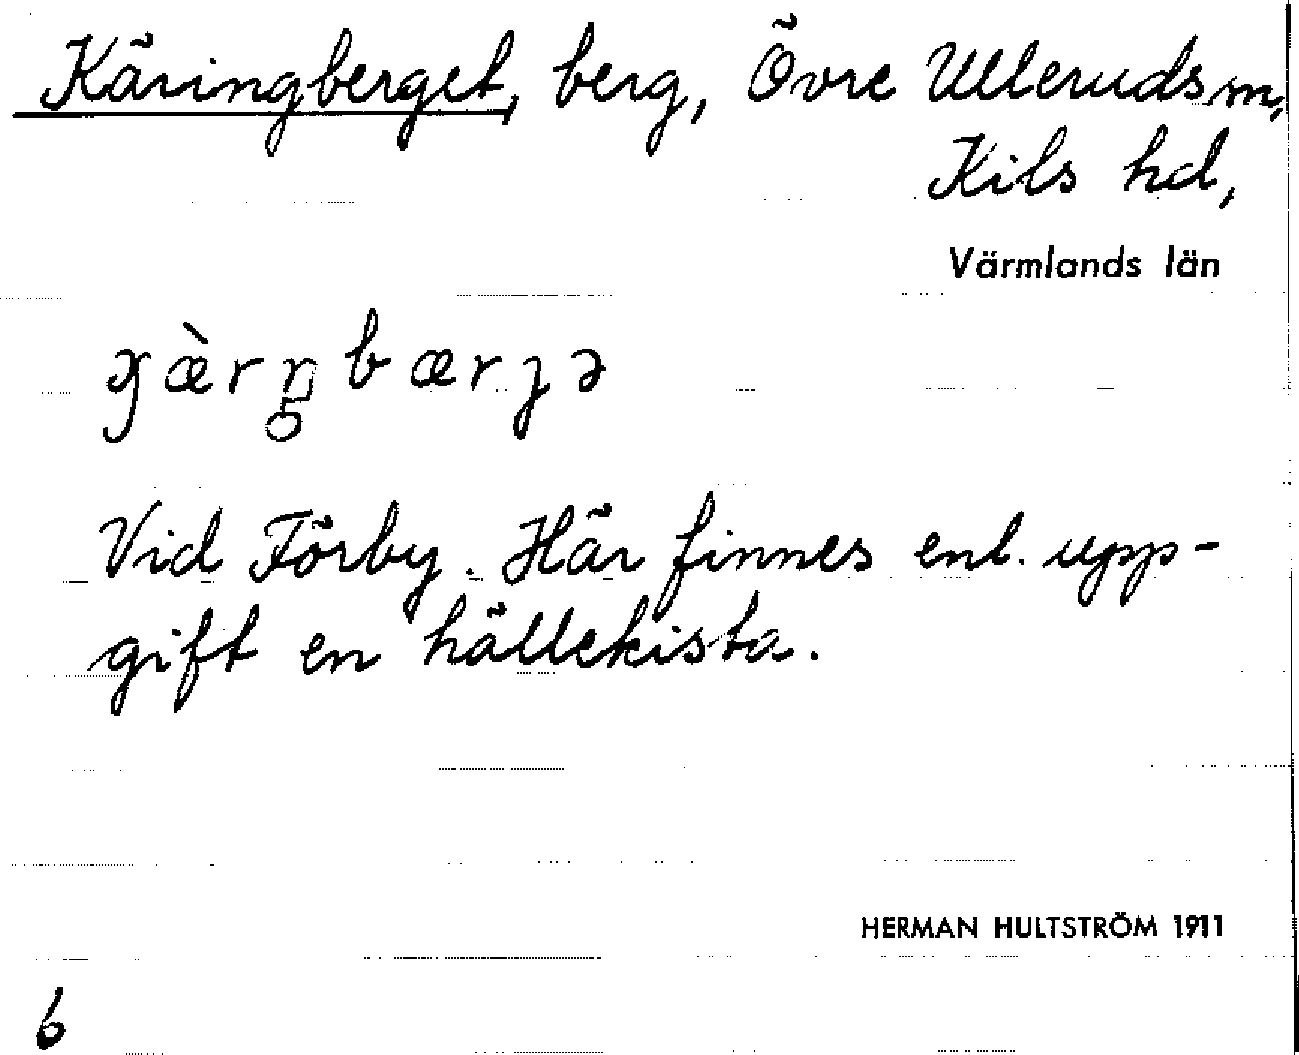 Käringberget, berg, Övre Ulleruds sn,
Kils hd,
Värmlands län
Vid Förby. Här finnes enl. upp-
gift en hällekista.
HERMAN HULTSTRÖM 1911
6